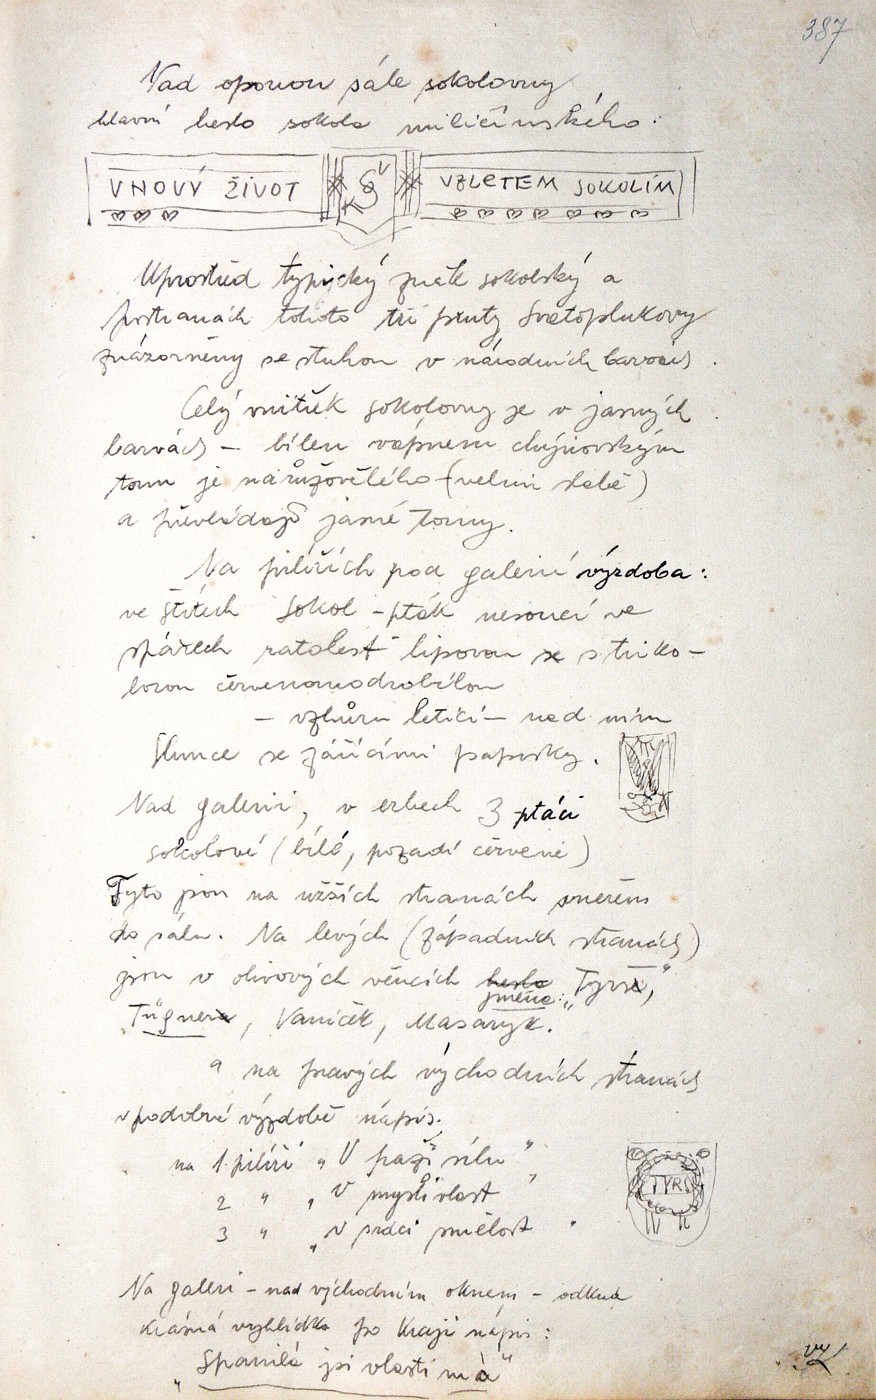 387
Nad oponou sále sokolovny
hlavní heslo sokola miličínského.
V NOVÝ ŽIVOT
VZLETEM SOKOLÍM
Uprostřed typický znak sokolský a
postranách tohoto tři pruty Svatoplukovy
znázorněny se stuhou v národních barvách.
Celý vnitřek sokolovny je v jasných
barvách – bílen vápnem chýnovským
tonu je narůžovělého – (velmi slabě)
a převládají jasné tony.
Na pilířích pod galerií výzdoba:
ve štítech Sokol – pták nesoucí ve
spárech ratolest lipovou s triko-
lorou červenomodrobílou
– vzhůru letící – nad ním
Slunce se zářícími paprsky.
Nad galerií, v erbech 3 ptáci
sokolové (bílé, pozadí červené)
Tyto jsou na užších stranách směrem
do sálu. Na levých (západních stranách)
jsou v olivových věncích heslo
jména: „Tyrš,"
Tügner, Vaníček, Masaryk.
a na pravých východních stranách
v podobné výzdobě nápis.
na 1. pilíři „V paži sílu"
2 " „V mysli vlast"
3 " „V srdci smělost"
TYRŠ
Na galerii – nad východním oknem – odkud
krásná vyhlídka po kraji nápis:
„Spanilá jsi vlasti má"